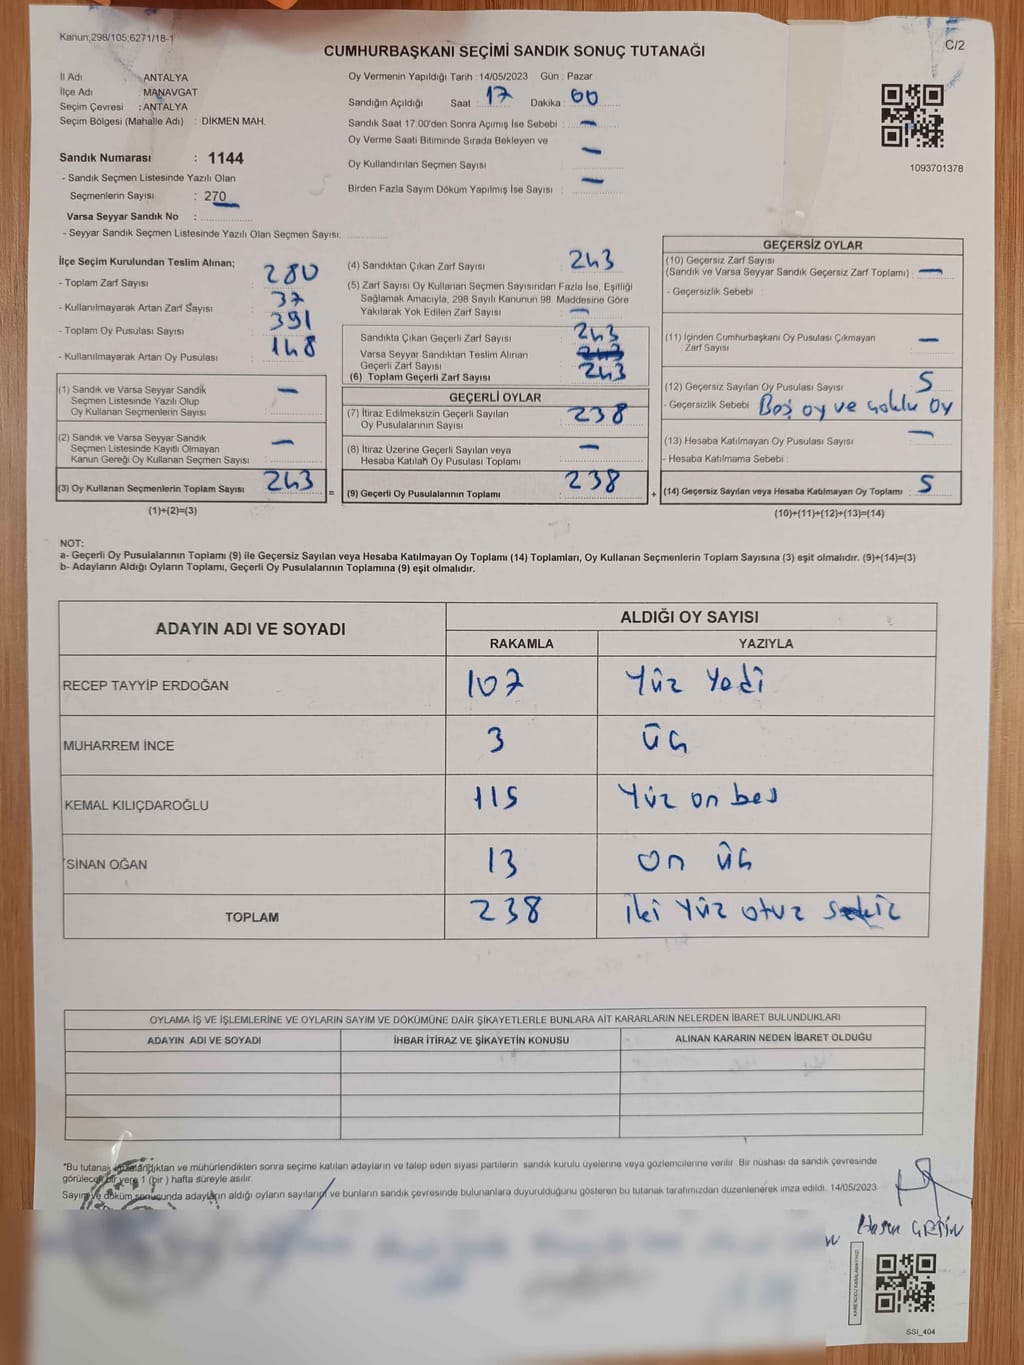 Kanun;298/105;6271/18-1
C/2
CUMHURBAŞKANI SEÇİMİ SANDIK SONUÇ TUTANAĞI
İl Adı ANTALYA
İlçe Adı MANAVGAT
Seçim Çevresi : ANTALYA
Seçim Bölgesi (Mahalle Adı) : DİKMEN MAH.
Sandık Numarası : 1144
- Sandık Seçmen Listesinde Yazılı Olan
Seçmenlerin Sayısı : 270
Varsa Seyyar Sandık No :
- Seyyar Sandık Seçmen Listesinde Yazılı Olan Seçmen Sayısı:
Oy Vermenin Yapıldığı Tarih : 14/05/2023 Gün : Pazar
Sandığın Açıldığı Saat : 17 Dakika : 00
Sandık Saat 17:00'den Sonra Açımış İse Sebebi : -
Oy Verme Saati Bitiminde Sırada Bekleyen ve
Oy Kullandırılan Seçmen Sayısı : -
Birden Fazla Sayım Döküm Yapılmış İse Sayısı : -
1093701378
İlçe Seçim Kurulundan Teslim Alınan;
- Toplam Zarf Sayısı : 280
- Kullanılmayarak Artan Zarf Sayısı : 37
- Toplam Oy Pusulası Sayısı : 391
- Kullanılmayarak Artan Oy Pusulası : 148
(1) Sandık ve Varsa Seyyar Sandık
Seçmen Listesinde Yazılı Olup
Oy Kullanan Seçmenlerin Sayısı : -
(2) Sandık ve Varsa Seyyar Sandık
Seçmen Listesinde Kayıtlı Olmayan
Kanun Gereği Oy Kullanan Seçmen Sayısı : -
(3) Oy Kullanan Seçmenlerin Toplam Sayısı : 243
(1)+(2)=(3)
=
(4) Sandıktan Çıkan Zarf Sayısı : 243
(5) Zarf Sayısı Oy Kullanan Seçmen Sayısından Fazla İse, Eşitliği
Sağlamak Amacıyla, 298 Sayılı Kanunun 98. Maddesine Göre
Yakılarak Yok Edilen Zarf Sayısı : -
Sandıkta Çıkan Geçerli Zarf Sayısı : 243
Varsa Seyyar Sandıktan Teslim Alınan
Geçerli Zarf Sayısı
(6) Toplam Geçerli Zarf Sayısı : 243
GEÇERLİ OYLAR
(7) İtiraz Edilmeksizin Geçerli Sayılan
Oy Pusulalarının Sayısı : 238
(8) İtiraz Üzerine Geçerli Sayılan veya
Hesaba Katılan Oy Pusulası Toplamı : -
(9) Geçerli Oy Pusulalarının Toplamı : 238
+
GEÇERSİZ OYLAR
(10) Geçersiz Zarf Sayısı
(Sandık ve Varsa Seyyar Sandık Geçersiz Zarf Toplamı) : -
- Geçersizlik Sebebi :
(11) İçinden Cumhurbaşkanı Oy Pusulası Çıkmayan
Zarf Sayısı : -
(12) Geçersiz Sayılan Oy Pusulası Sayısı : 5
- Geçersizlik Sebebi : Boş oy ve çoklu oy
(13) Hesaba Katılmayan Oy Pusulası Sayısı : -
- Hesaba Katılmama Sebebi :
(14) Geçersiz Sayılan veya Hesaba Katılmayan Oy Toplamı : 5
(10)+(11)+(12)+(13)=(14)
NOT:
a- Geçerli Oy Pusulalarının Toplamı (9) ile Geçersiz Sayılan veya Hesaba Katılmayan Oy Toplamı (14) Toplamları, Oy Kullanan Seçmenlerin Toplam Sayısına (3) eşit olmalıdır. (9)+(14)=(3)
b- Adayların Aldığı Oyların Toplamı, Geçerli Oy Pusulalarının Toplamına (9) eşit olmalıdır.
ADAYIN ADI VE SOYADI ALDIĞI OY SAYISI
RAKAMLA YAZIYLA
RECEP TAYYİP ERDOĞAN 107 Yüz Yedi
MUHARREM İNCE 3 üç
KEMAL KILIÇDAROĞLU 115 Yüz on beş
SİNAN OĞAN 13 on üç
TOPLAM 238 iki Yüz otuz sekiz
OYLAMA İŞ VE İŞLEMLERİNE VE OYLARIN SAYIM VE DÖKÜMÜNE DAİR ŞİKAYETLERLE BUNLARA AİT KARARLARIN NELERDEN İBARET BULUNDUKLARI
ADAYIN ADI VE SOYADI İHBAR İTİRAZ VE ŞİKAYETİN KONUSU ALINAN KARARIN NEDEN İBARET OLDUĞU
*Bu tutanak imzalandıktan ve mühürlendikten sonra seçime katılan adayların ve talep eden siyasi partilerin sandık kurulu üyelerine veya gözlemcilerine verilir. Bir nüshası da sandık çevresinde
görülecek bir yere 1 (bir ) hafta süreyle asılır.
Sayım ve döküm sonucunda adayların aldığı oyların sayılarını ve bunların sandık çevresinde bulunanlara duyurulduğunu gösteren bu tutanak tarafımızdan düzenlenerek imza edildi. 14/05/2023
Hasan
SSI_404